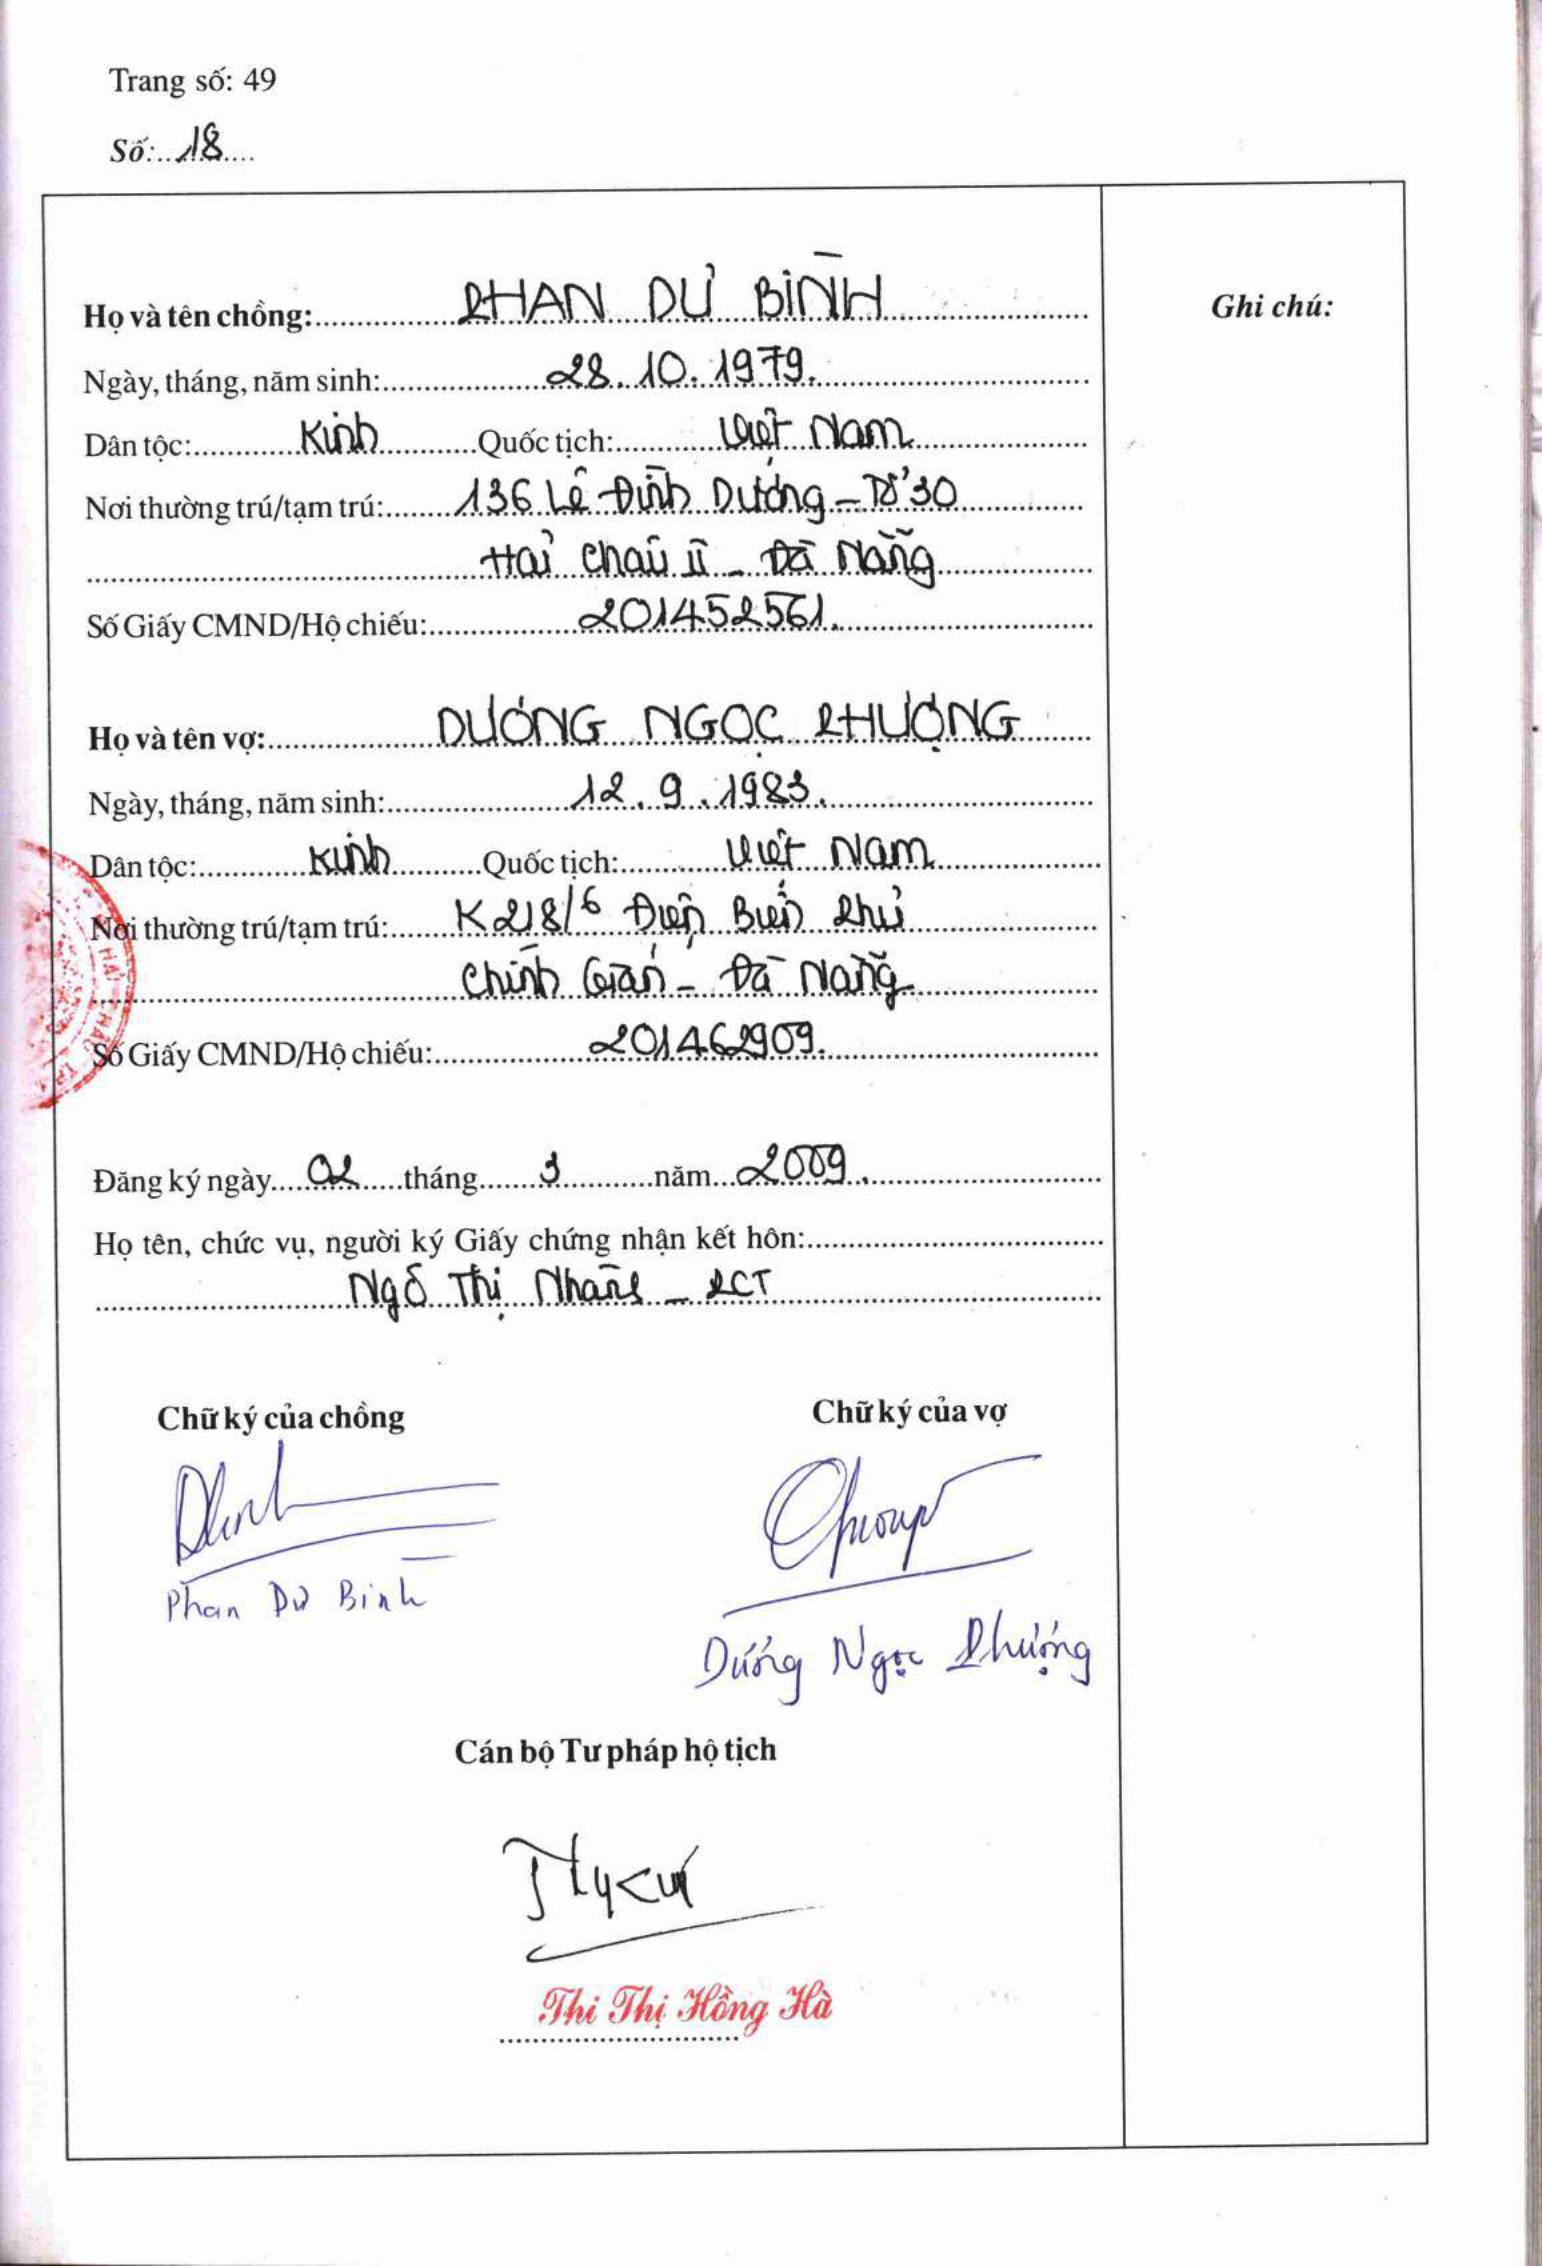 Trang số: 49
Số: 18
Ghi chú:
Họ và tên chồng: PHAN DƯ BÌNH
Ngày, tháng, năm sinh: 28.10.1979.
Dân tộc: Kinh Quốc tịch: Việt Nam
Nơi thường trú/tạm trú: 136 Lê Đình Dương - Tổ 30
Hải Châu II - Đà Nẵng
Số Giấy CMND/Hộ chiếu: 201452561.
Họ và tên vợ: DƯƠNG NGỌC PHƯỢNG
Ngày, tháng, năm sinh: 12.9.1983.
Dân tộc: Kinh Quốc tịch: Việt Nam
Nơi thường trú/tạm trú: K218/6 Điện Biên Phủ
Chính Gián - Đà Nẵng
Số Giấy CMND/Hộ chiếu: 201462909.
Đăng ký ngày 02 tháng 3 năm 2009.
Họ tên, chức vụ, người ký Giấy chứng nhận kết hôn:
Ngô Thị Nhàn - PCT
Chữ ký của chồng Chữ ký của vợ
Phan Dư Bình
Dương Ngọc Phượng
Cán bộ Tư pháp hộ tịch
Thi Thị Hồng Hà
HẢI CHÂU TP.